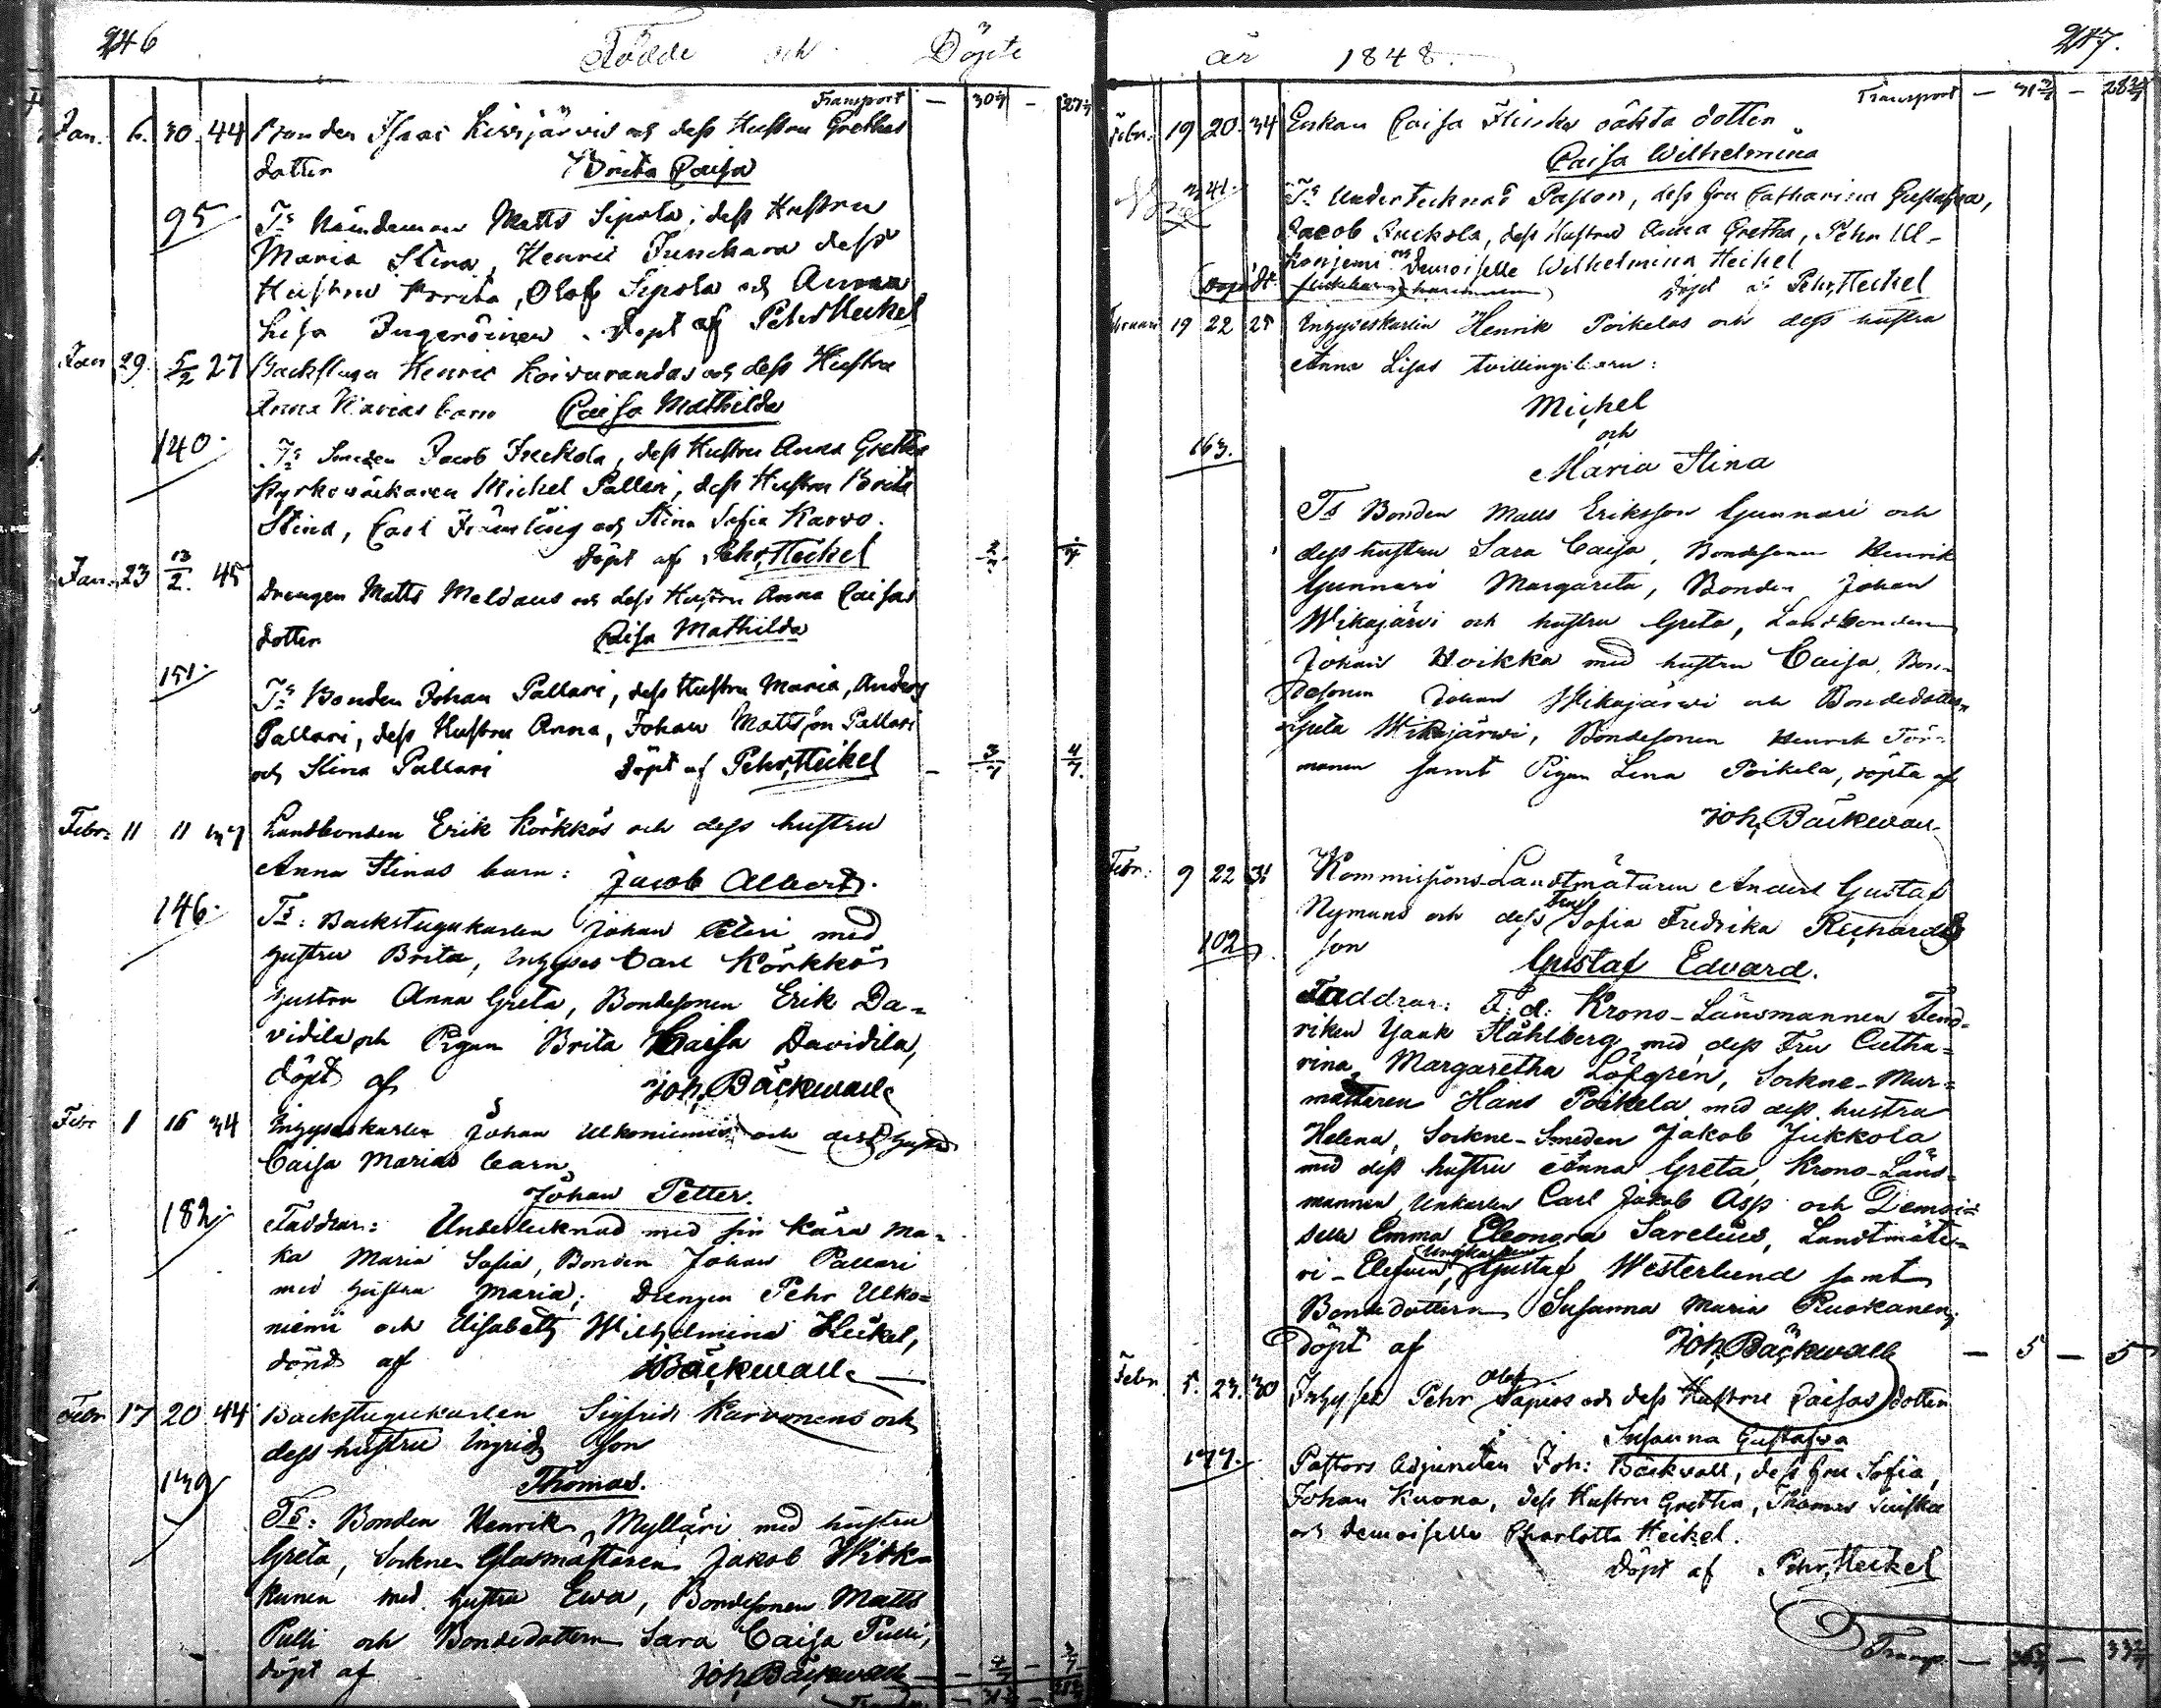 246
Födde och Döpte
Transport — 30 — 27
Jan. 6. 30. 44 Bonden Isaac Kirrjärvis och dess Hustru Grethas
dotter Brita Caisa
95 Ts Nämndeman Matts Sipola, dess Hustru
Maria Stina, Henric Junchara dess
Hustru Brita, Olof Sipola och Anna
Lisa Ingeröinen. Döpt af Pehr Heickel
Jan 29. 5/2 27 Backstugu Henric Koivurandas och dess Hustru
Anna Marias barn Caisa Mathilda
140. Ts Smeden Jacob Juckola, dess Hustru Anna Gretha
Kyrkowäktaren Michel Palleri, dess Hustru Brita
Stina, Carl Främling och Stina Sofia Karvo.
Döpt af Pehr Heickel
Jan. 23 13/2. 45 Drengen Matts Meldaus och dess Hustru Anna Caisas
dotter Caisa Mathilda
151. Ts Bonden Johan Pallari, dess Hustru Maria, Anders
Pallari, dess Hustru Anna, Johan Mattsson Pallari
och Stina Pallari Döpt af Pehr Heickel — 3/7 4/7.
Febr: 11 11 Landbonden Erik Körkkös och dess hustru
Anna Stinas barn: Jacob Albert.
146. Ts: Backstugukarlen Johan Peteri med
hustru Brita, Inhyses Carl Körkkös
hustru Anna Greta, Bondesonen Erik Da-
vidila och Pigan Brita Caisa Davidila,
döpt af Joh. Bäckwall
Febr 1 16 34 Inhyseskarlen Johan Ulkoniemis och dess hustru
Caisa Marias barn
Johan Petter.
182. Faddrar: Undertecknad med sin kära ma-
ka Maria Sofia, Bonden Johan Pallari
med hustru Maria, Drengen Pehr Ulko-
niemi och Elisabeth Wilhelmina Heickel,
döpt af J Bäckwall
Febr 17 20 44 Backstugukarlen Sigfrids Karvonens och
dess hustru Ingrids son
Thomas.
139 Ts: Bonden Henrik Mylläri med hustru
Greta, Sockne Glasmästaren Jakob Wirk-
kunen med hustru Ewa, Bondesonen Matts
Pulli och Bondedottern Sara Caisa Pulli,
döpt af Joh. Bäckwall
247.
år 1848.
Transport — 31 — 28
Febr. 19 20. 34 Enkan Caisa Flinks oäkta dotter
Caisa Wilhelmina
Ts Undertecknad Pastor, dess fru Catharina Gustafva,
Jacob Juckola, dess Hustru Anna Gretha, Pehr Ul-
koniemi och Demoiselle Wilhelmina Heickel
Döpt af Pehr Heickel
Februari 19 22 25 Inhyseskarlen Henrik Poikelas och dess hustru
Anna Lisas tvillingebarn:
Michel
och
163.
Maria Stina
Ts Bonden Matts Eriksson Gunnari och
dess hustru Sara Caisa, Bondesonen Henrik
Gunnari Margareta, Bonden Johan
Wikajärvi och hustru Greta, Landbonden
Johan Hoikka med hustru Caisa, Bon-
desonen Johan Wikajärvi och Bondedottren
Greta Wikajärvi, Bondesonen Henrik Tör-
manen samt Pigan Lena Poikela, döpta af
Joh. Bäckwall
Febr: 9 22 31 Kommissions-Landtmätaren Anders Gustaf
Nymans och dess Fru Sofia Fredrika Richards
102 son
Gustaf Edvard.
Faddrar: F. d. Krono-Länsmannen Fend-
riken Isaak Ståhlberg med dess Fru Catha-
rina Margaretha Löfgrén, Sockne-Mur-
mästaren Hans Poikela med dess hustru
Helena, Sockne-Smeden Jakob Jukkola
med dess hustru Anna Greta, Krono-Läns-
mannen Unkarlen Carl Jakob Asp och Demoi-
selle Emma Eleonora Sarelius, Landtmäte-
ri-Eleven, Ungkarlen Gustaf Westerlund samt
Bondedottern Susanna Maria Ruokanen,
Döpt af Joh. Bäckwall — 5 — 5
Febr. 5. 23. 30 Inhyses Pehr Olof Tapios och dess Hustru Caisas dotter
Susanna Gustafva
177. Pastors Adjuncten Joh: Bäckvall, dess fru Sofia,
Johan Kuona, dess Hustru Gretha, Thomas
och Demoiselle Charlotta Heickel.
Döpt af Pehr Heickel
Transp.